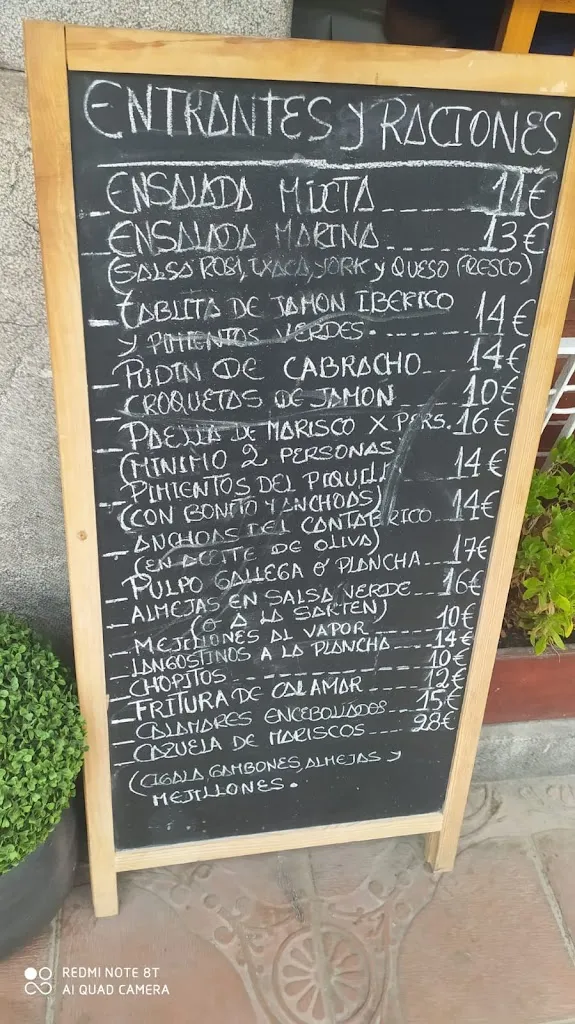 ENTRANTES Y RACIONES
- ENSALADA MIXTA ---- 11€
- ENSALADA MARINA ---- 13€
(SALSA ROSA, TXACA, YORK Y QUESO FRESCO)
- TABLITA DE JAMON IBERICO
Y PIMIENTOS VERDES. ---- 14€
- PUDIN DE CABRACHO ---- 14€
- CROQUETAS DE JAMON ---- 10€
- PAELLA DE MARISCO X PERS. 16€
(MINIMO 2 PERSONAS)
- PIMIENTOS DEL PIQUILLO 14€
(CON BONITO Y ANCHOAS)
- ANCHOAS DEL CANTABRICO ---- 14€
(EN ACEITE DE OLIVA)
- PULPO GALLEGA O PLANCHA ---- 17€
- ALMEJAS EN SALSA VERDE ---- 16€
(O A LA SARTEN)
- MEJILLONES AL VAPOR ---- 10€
- LANGOSTINOS A LA PLANCHA ---- 14€
- CHOPITOS ---- 10€
- FRITURA DE CALAMAR ---- 12€
- CALAMARES ENCEBOLLADOS ---- 15€
- CAZUELA DE MARISCOS ---- 28€
(CIGALA, GAMBONES, ALMEJAS Y
MEJILLONES.
REDMI NOTE 8T
AI QUAD CAMERA